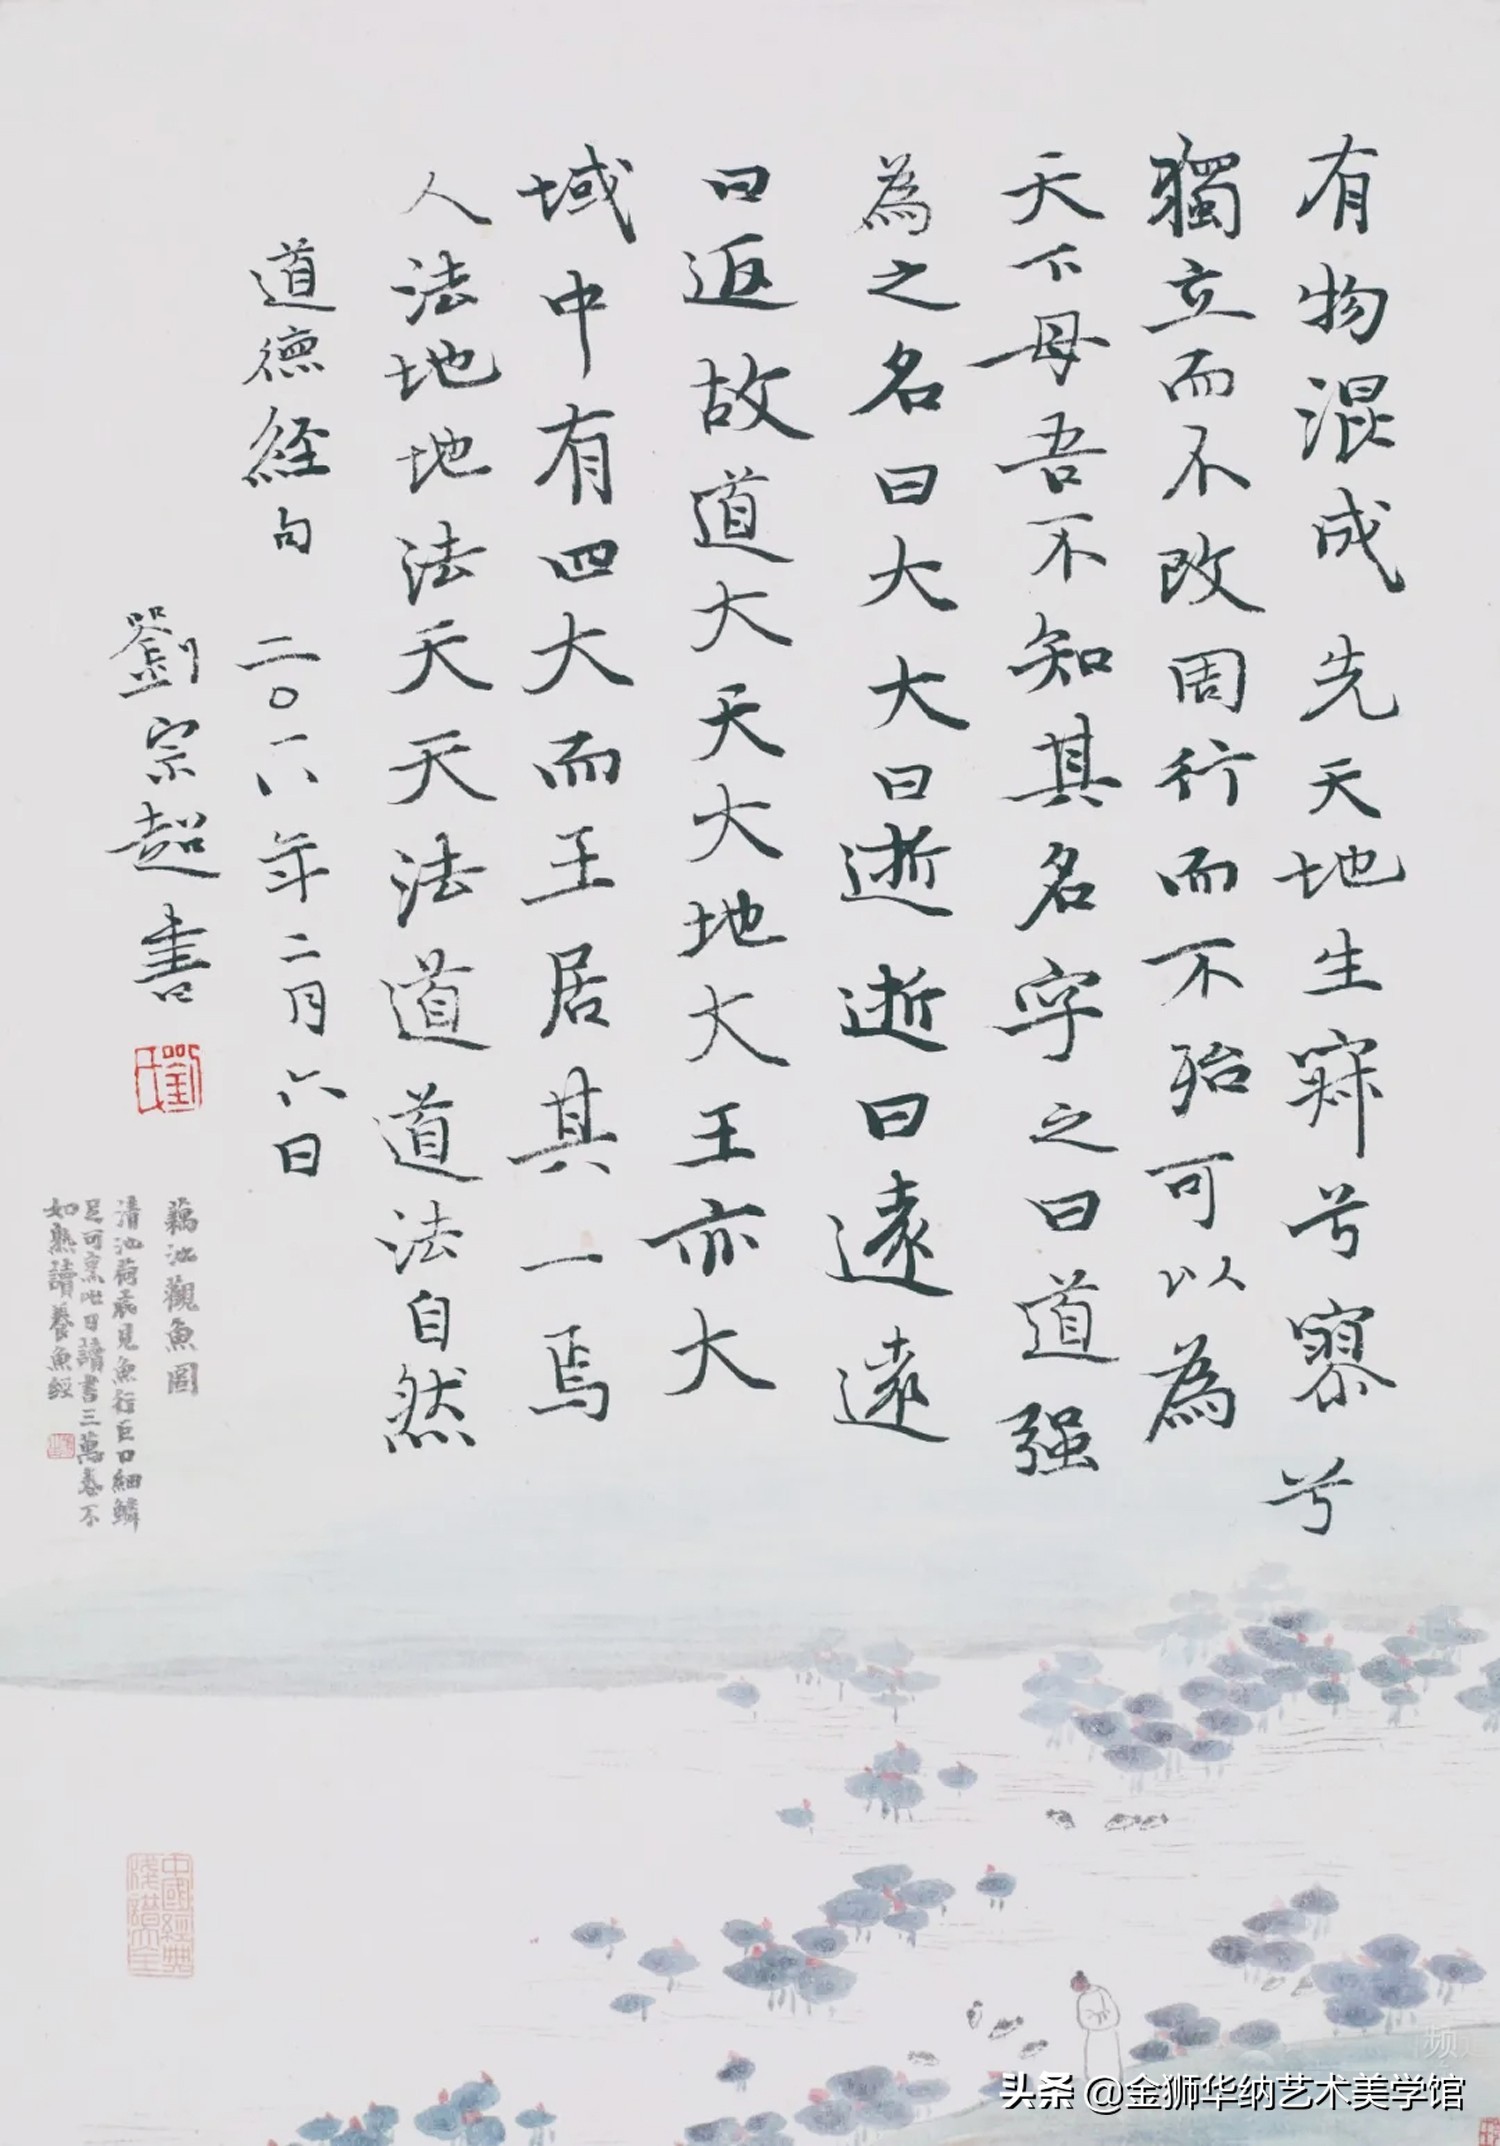 有物混成先天地生寂兮寥兮
獨立而不改周行而不殆可以為
天下母吾不知其名字之曰道强
為之名曰大大曰逝逝曰遠遠
曰返故道大天大地大王亦大
域中有四大而王居其一焉
人法地地法天天法道道法自然
道德經句 二〇一八年二月六日
劉宗超書
劉氏
藕池觀魚圖
清池荷底見魚行巨口細鱗
足可烹昨日讀書三萬卷不
如熟讀養魚經
中國經典
头条 @金狮华纳艺术美学馆